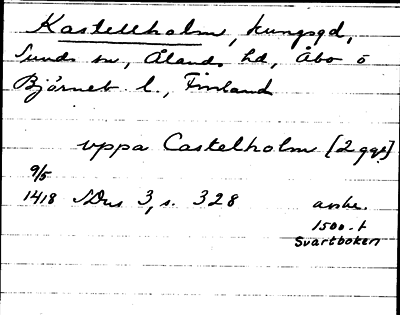 Kastellholm, kungsgd,
Sunds sn, Ålands hd, Åbo o
Björneb l., Finland
uppa Castelholm [2 ggr]
9/5
1418 SDns 3, s. 328 avskr.
1500-t
Svartboken